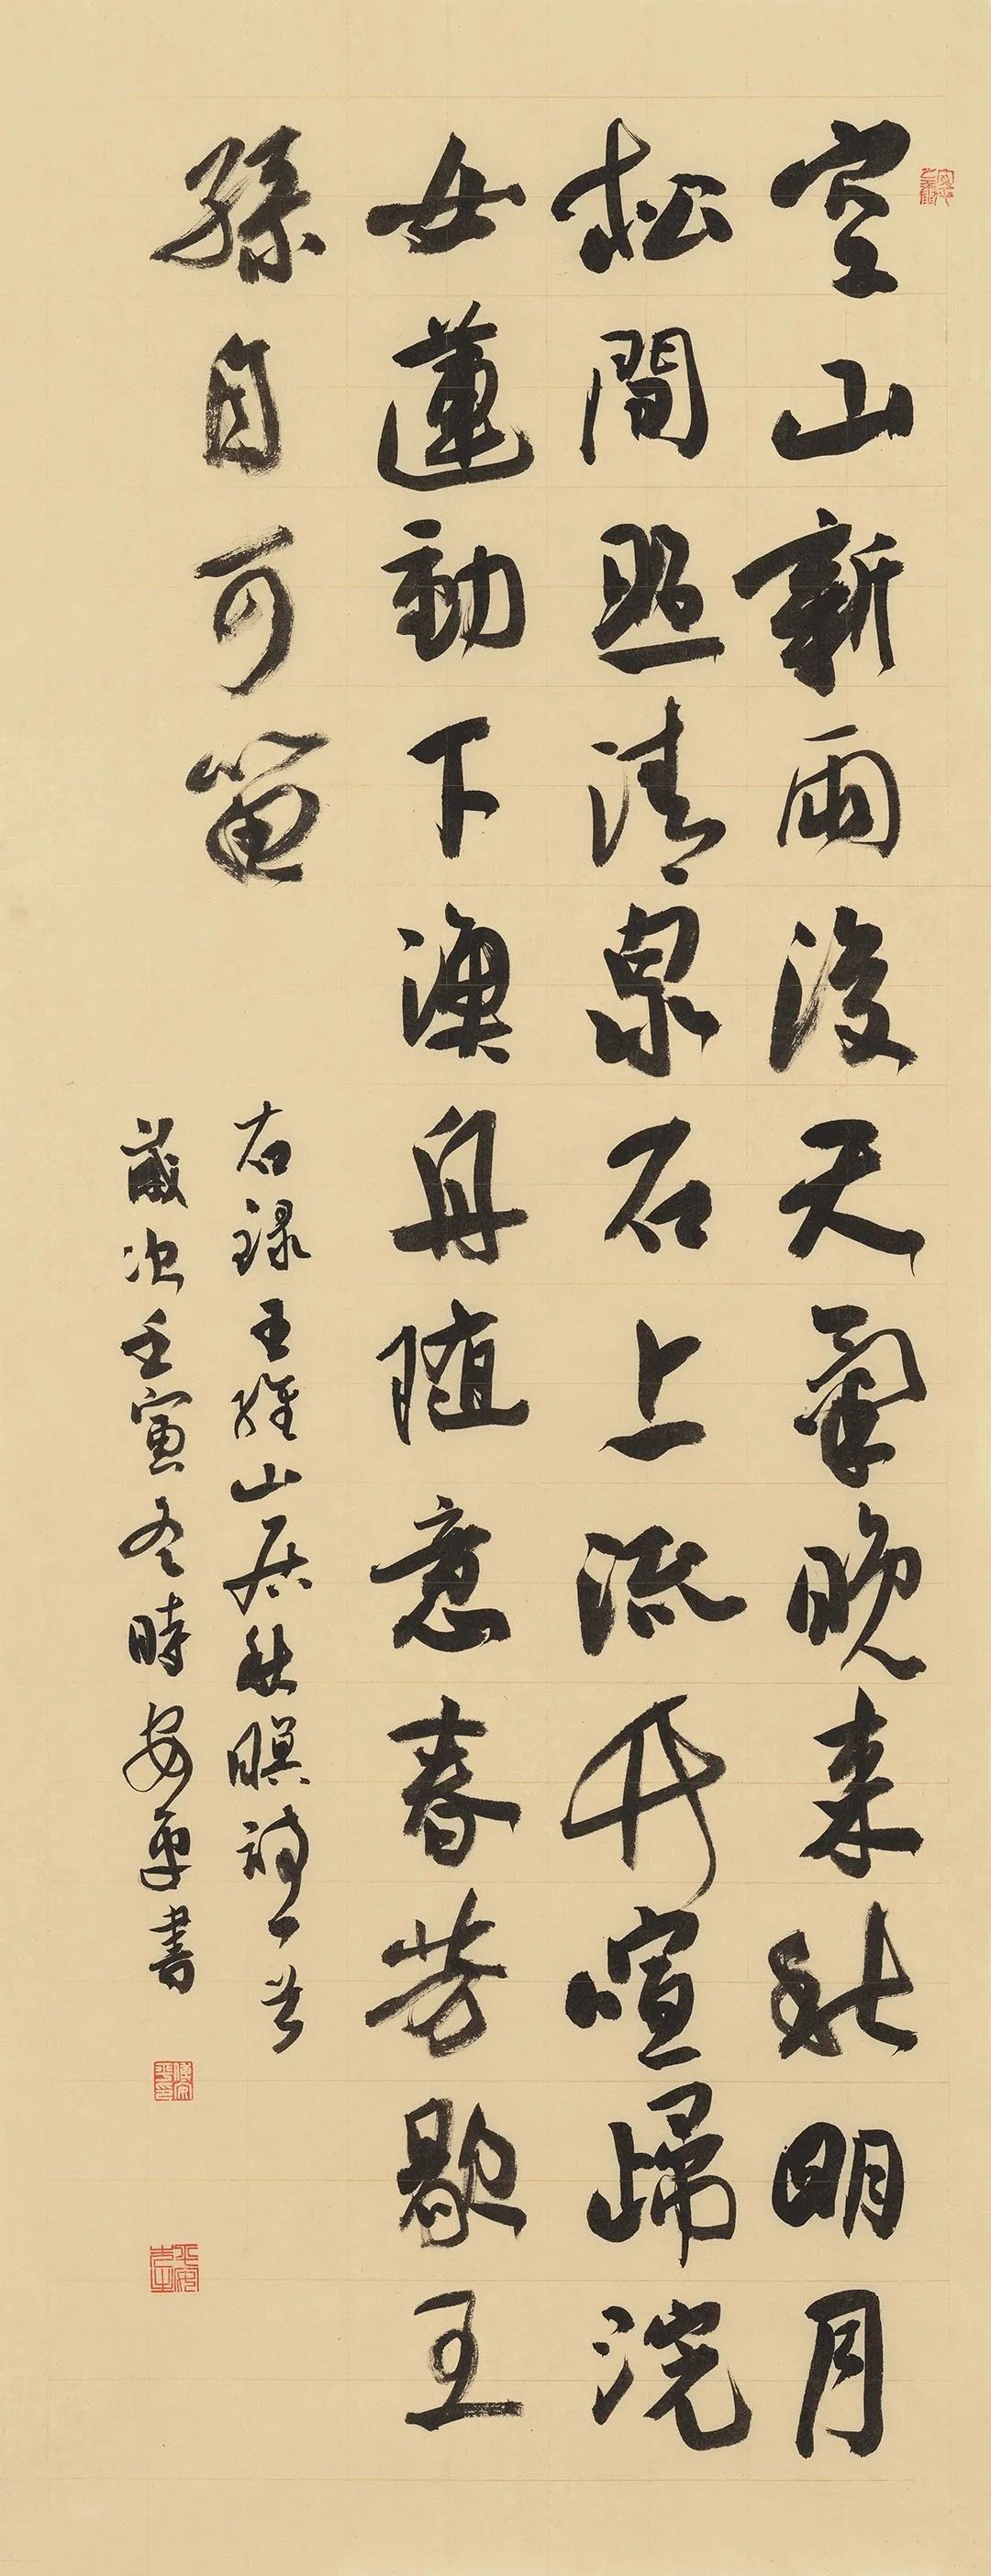 空山新雨後天氣晚来秋明月
松間照清泉石上流竹喧歸浣
女蓮動下漁舟随意春芳歇王
孫自可留
右録王維山居秋暝詩一首
歲次壬寅冬時安平書